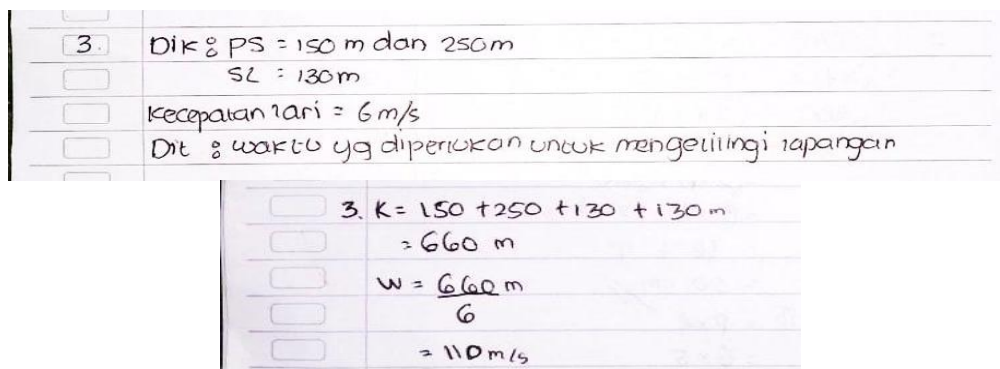 3. Dik : PS = 150 m dan 250m
SL : 130m
Kecepatan lari = 6 m/s
Dit : waktu yg diperlukan untuk mengelilingi lapangan
3. K = 150 + 250 + 130 + 130 m
= 660 m
W = 660 m
6
= 110 m/s